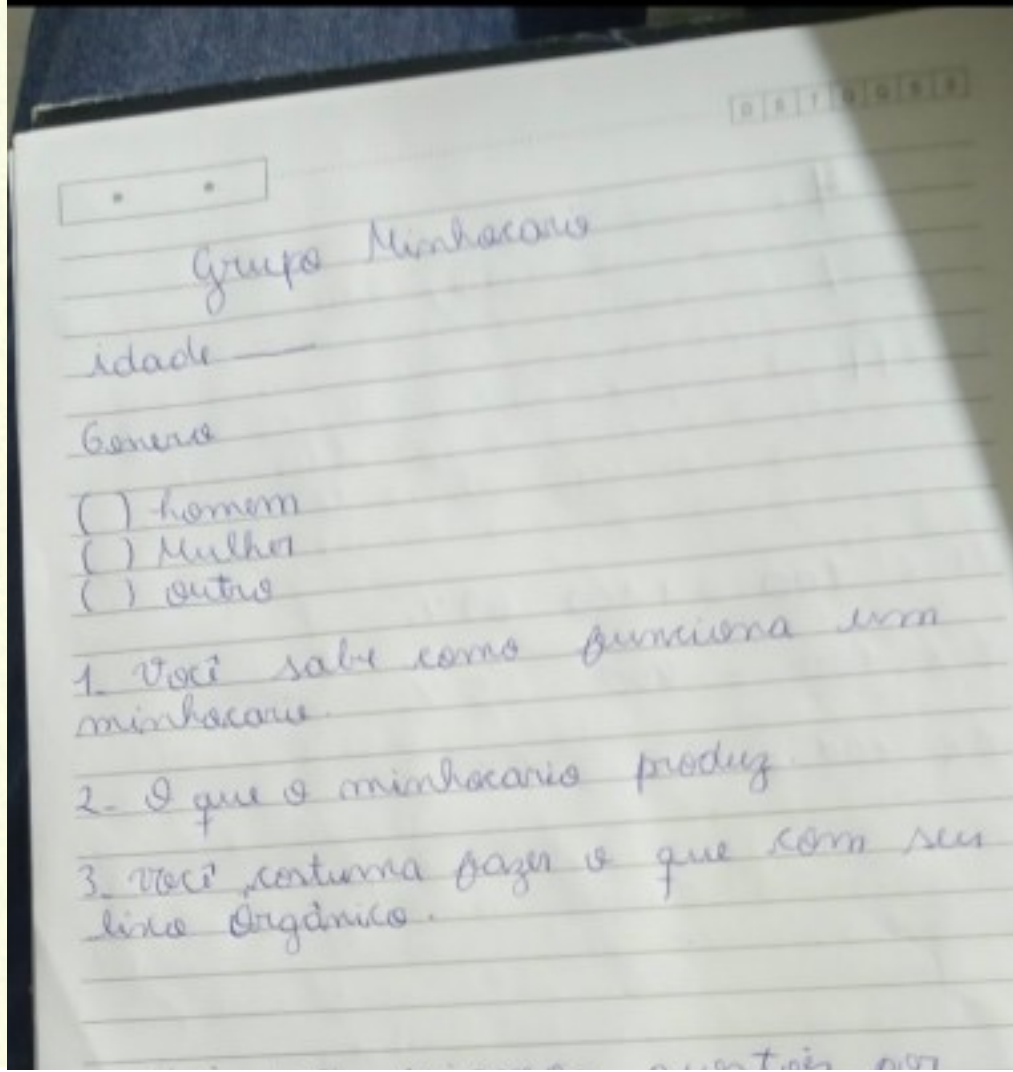 D S T Q Q S S
Grupo Minhocario
idade
Genero
( ) homem
( ) Mulher
( ) outro
1- Você sabe como funciona um
minhocario.
2- O que o minhocario produz
3- você costuma fazer o que com seu
lixo Orgânico.
questões por